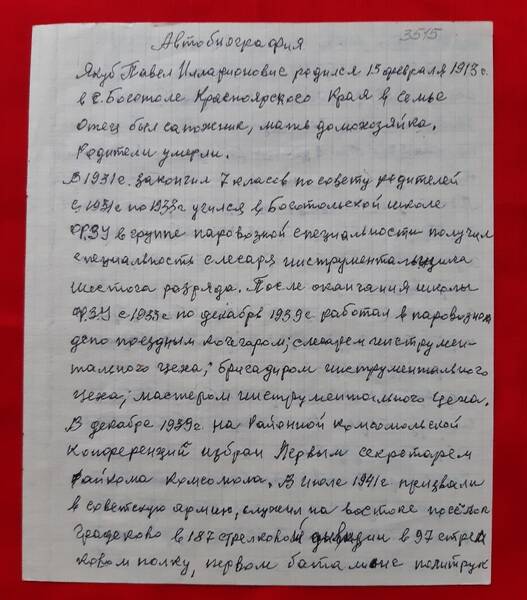 3515
Автобиография
Якуб Павел Илларионович родился 15 февраля 1913 г.
в г. Боготоле Красноярского Края в семье
Отец был сапожник, мать домохозяйка.
Родители умерли.
В 1931 г. закончил 7 классов по совету родителей
с 1931 г по 1933 г учился в Боготольской школе
ФЗУ в группе паровозной специальности получил
специальность слесаря инструментальщика
шестого разряда. После окончания школы
ФЗУ с 1933 г по декабрь 1939 г работал в паровозном
депо поездным кочегаром; слесарем инструмен-
тального цеха; бригадиром инструментального
цеха; мастером инструментального цеха.
В декабре 1939 г. на Районной комсомольской
конференций избран Первым секретарем
Райкома комсомола. В июле 1941 г призвали
в советскую армию, служил на востоке посёлок
Градеково в 187 стрелковой дивизии в 97 стрел
ковом полку, первом баталионе политрук